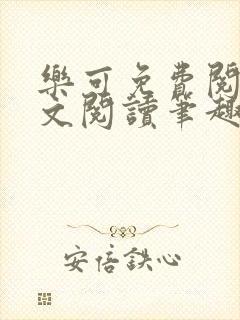 樂可免費閱
文閱讀筆趣
安倍鉄心